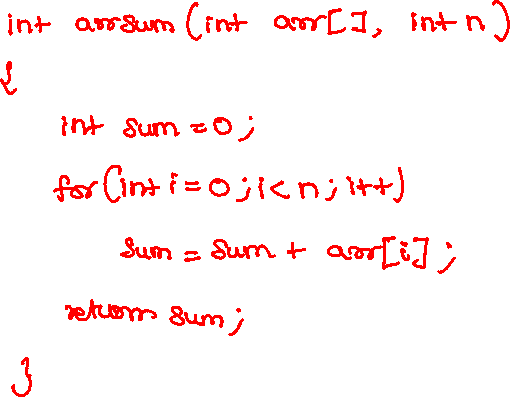 int arrsum (int arr[], int n)
{
int sum = 0;
for (int i = 0; i < n; i++)
sum = sum + arr[i];
return sum;
}